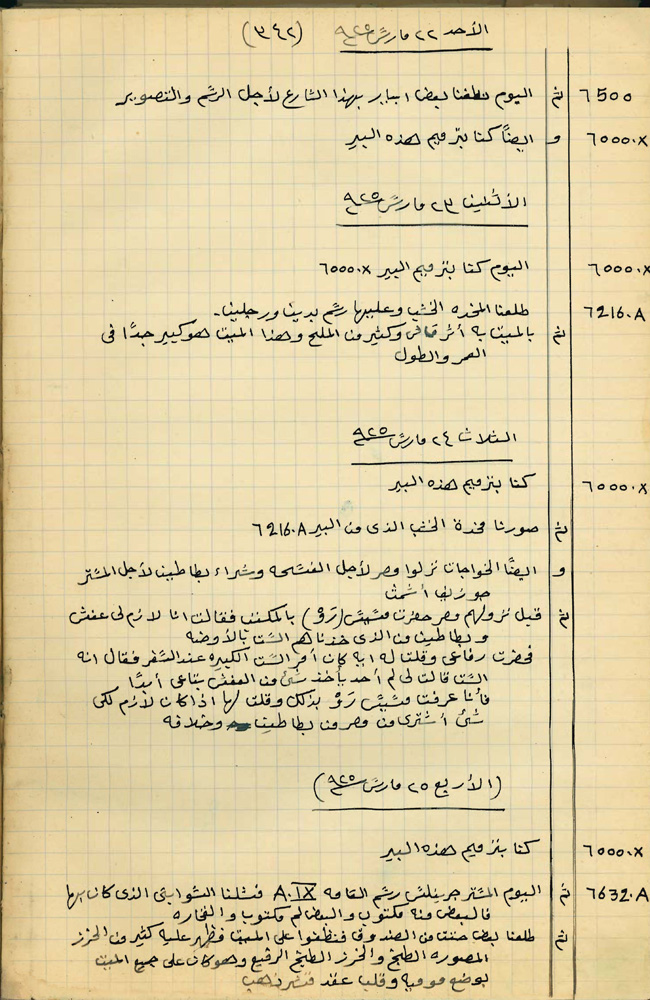 الأحد ٢٢ مارس ٩٢٥ (٣٤٢)
6500 ثم اليوم نظفنا بعض ابيار بهذا الشارع لأجل الرسم والتصوير
6000.X و ايضًا كنا بترميم هذه البير
الأثنين ٢٣ مارس ٩٢٥
6000.X اليوم كنا بترميم البير 6000.X
6216.A طلعنا المخده الخشب وعليها رسم يدين ورجلين.
ثم بالميت به أثر قماش وكثير من الملح وهذا الميت هو كبير جدًا فى
العمر والطول
الثلاث ٢٤ مارس ٩٢٥
6000.X كنا بترميم هذه البير
ثم صورنا مخدة الخشب الذى من البير 6216.A
و ايضًا الخواجات نزلوا مصر لأجل الفسحه وشراء بطاطين لأجل المستر
جوزيف
ثم قبل نزولهم مصر حضرت مسيس (رَوْ) بالمكتب فقالت انا لازم لى عفش
وبطاطين من الذى خدناهم الست بالأوضه
فحضرت رفاعى وقلت له ايه كان أمر الست الكبيره عند السفر فقال انه
الست قالت لى لم أحد يأخذ شئ من العفش بتاعى أبدًا
فأنا عرفت مسيس رَوْ بذلك وقلت لها اذا كان لازم لكى
شئ أشترى من مصر من بطاطين وخلافه
(الأربع ٢٥ مارس ٩٢٥)
6000.X كنا بترميم هذه البير
6632.A ثم اليوم المستر جرينلس رسم القامه A.IX فشلنا الشوابتى الذى كان بها
فالبعض منه مكتوب والبعض لم مكتوب والفخاره
ثم طلعنا بعض حتت من الصندوق فنظفوا على الميت فظهر عليه كثير من الخرز
المصوره الطبخ والخرز الطبخ الرفيع وهو كان على جميع الميت
بوضع موميه وقلب عقد قشر ذهب